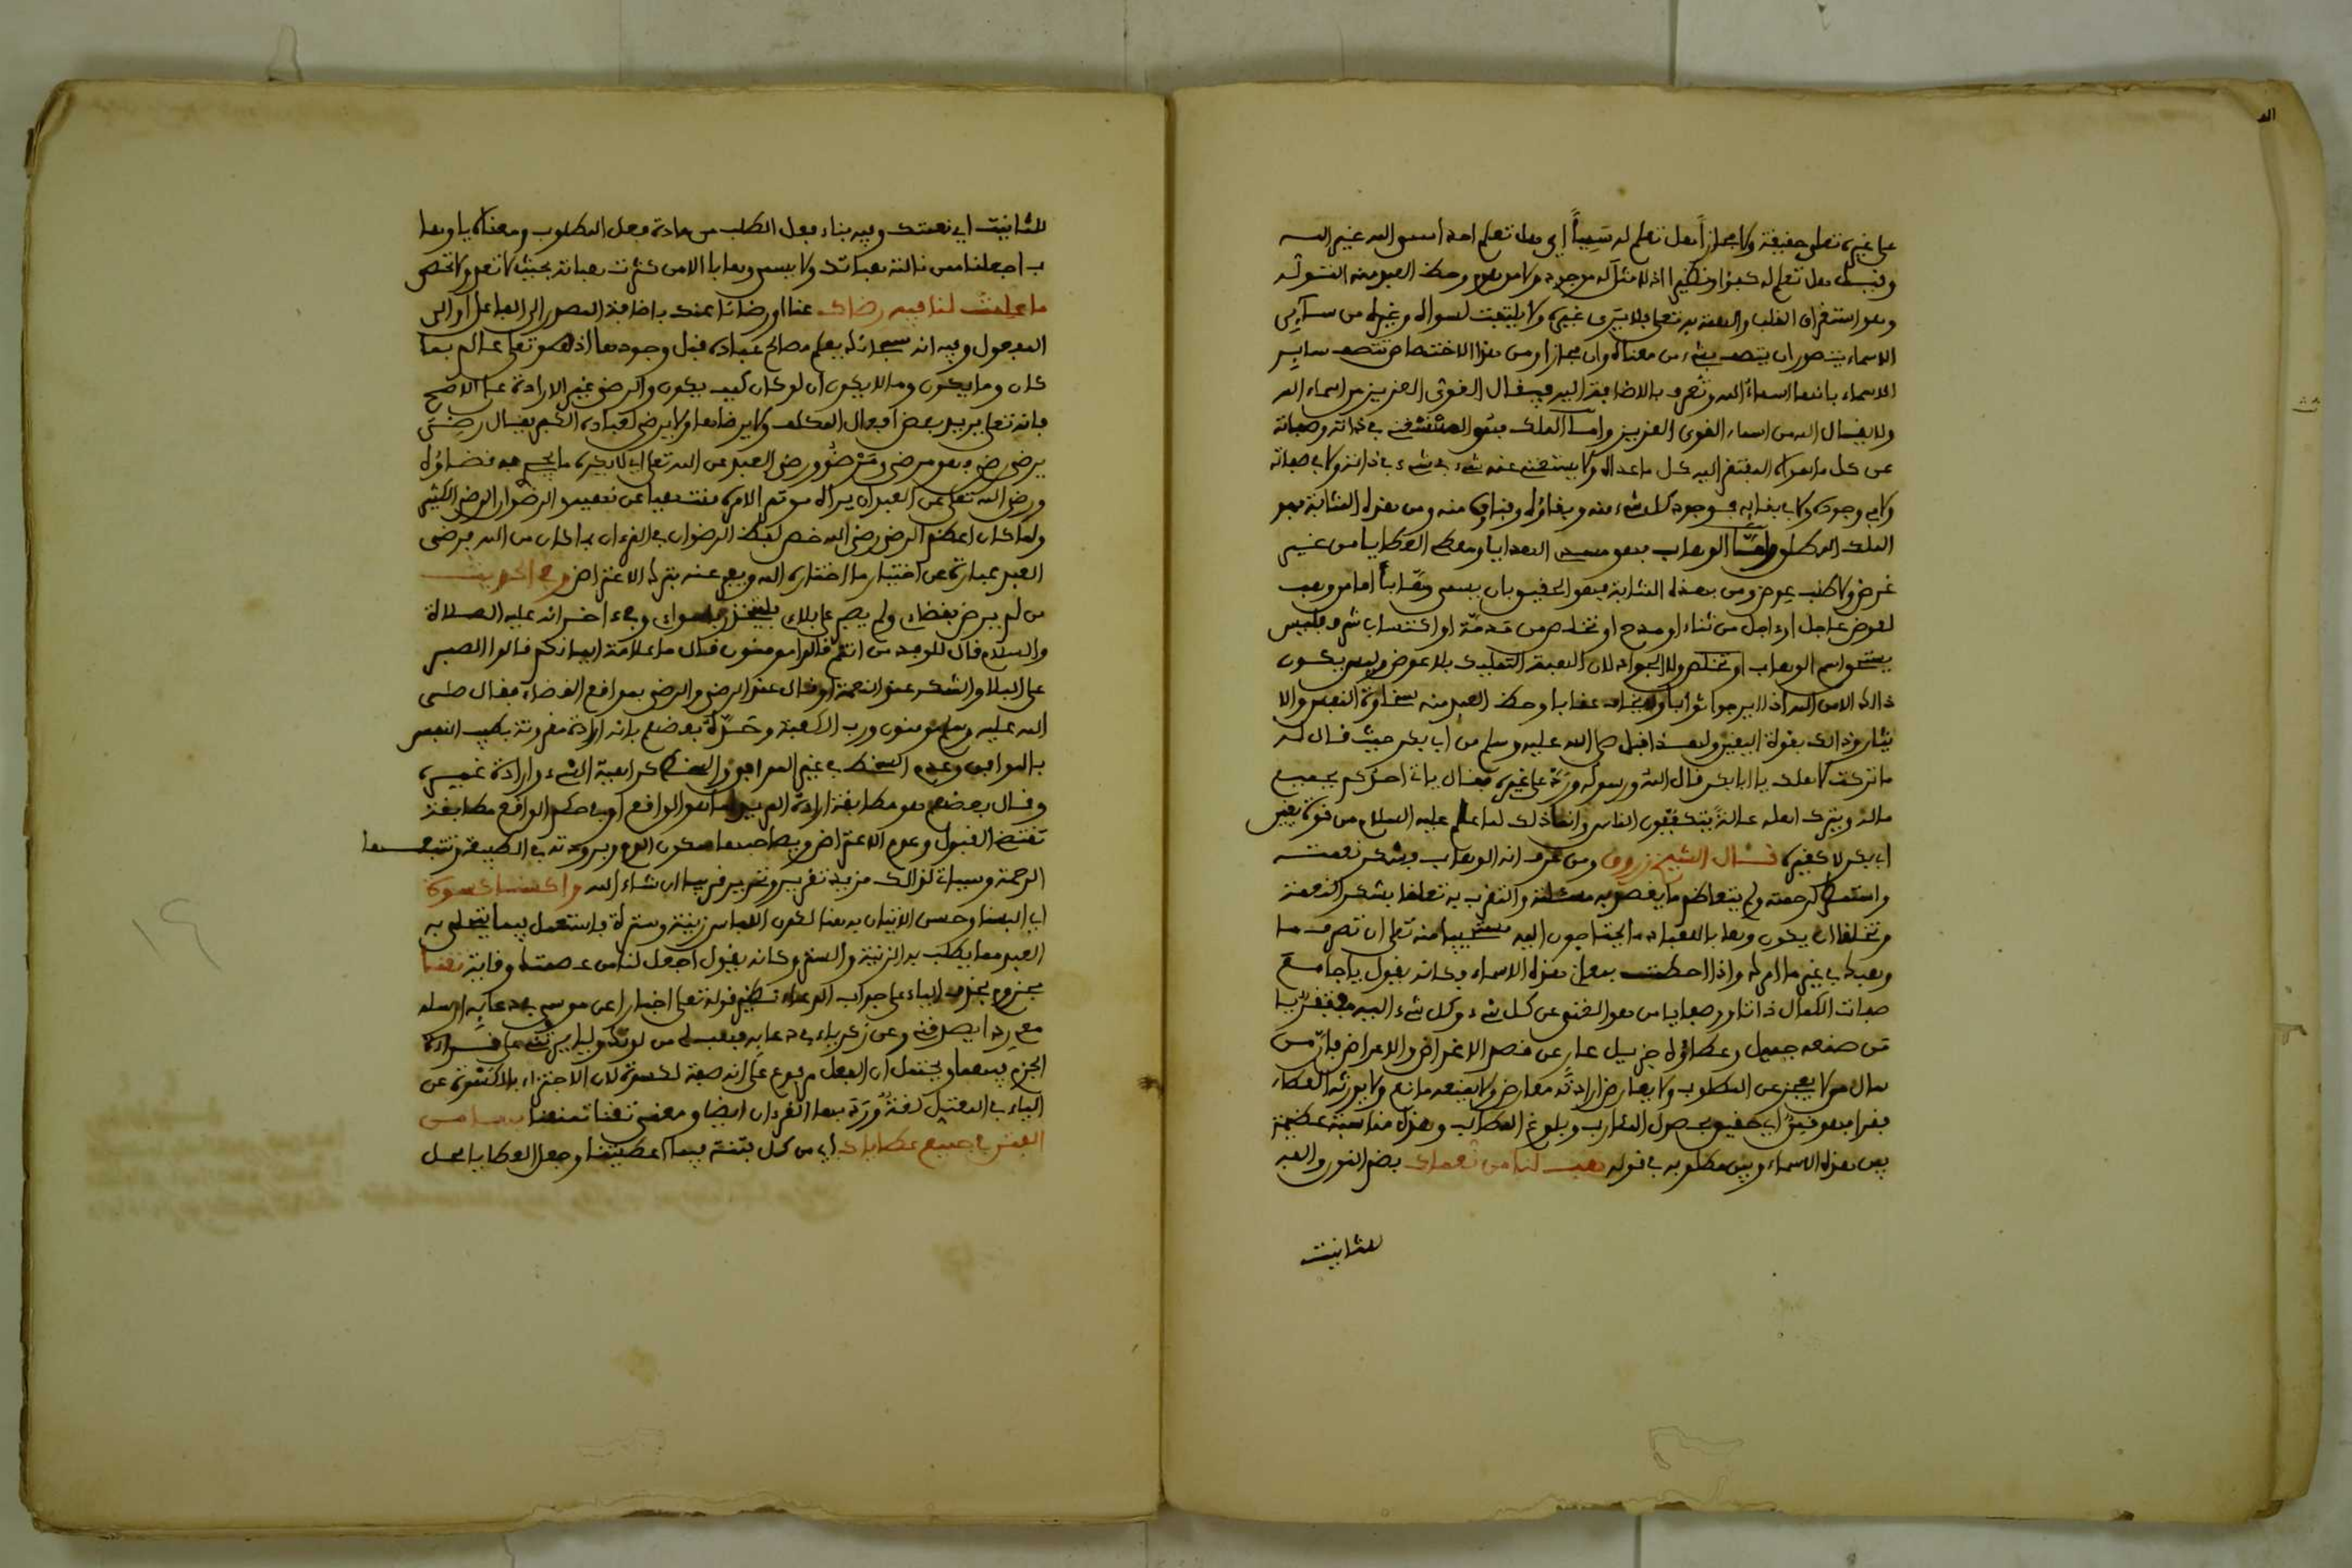 على غيره تعلى حقيقة ولا مجازا هل تعلم له سميا اي هل تعلم احدا اسمه الله غير الله
وقيل هل تعلم له كفؤا ونظيرا اذ لا مثل له موجود ولا موهوم وحظ العبد منه التوله
وهو استغراق القلب والهمة به تعلى فلا يرى غيره ولا يلتفت لسواه وغيره من ساير
الاسماء يتصور ان يتصف بشيء من معناه ولو مجازا ومن هذا الاختصاص تتصف ساير
الاسماء بانها اسماء الله وتعرف بالاضافة اليه فيقال القوي العزيز من اسماء الله
ولا يقال الله من اسماء القوي العزيز واما الملك فهو المستغني في ذاته وصفاته
عن كل ما سواه المفتقر اليه كل ما عداه ولا يستغني عنه شيء في شيء في ذاته ولا في صفاته
ولا في وجوده ولا في بقايه فوجود كل شيء منه وبقاؤه وفناؤه منه ومن هذه المثابة فهو
الملك المطلق واما الوهاب فهو الهدايا ومعطي العطايا من غير
غرض ولا طلب عوض ومن بهذه المثابة فهو الحقيق بان يسمى وهابا اما من وهب
لعوض عاجل او ءاجل من ثناء او مدح او تخلص من مذمة او اكتساب شرف فليس
يستحق اسم الوهاب ولا الجواد لان الهبة التمليك بلا عوض وليس يكون
ذالك الا من الله اذ لا يرجوا ثوابا ولا يخاف عقابا وحظ العبد منه سخاوة النفس والا
يثار وذالك بقوة اليقين ولهذا قبل صلى الله عليه وسلم من ابي بكر حيث قال له
ما تركت لاهلك يا ابا بكر قال الله ورسوله ورده على غيره فقال ياتي احدكم بجميع
ماله ويترك اهله عالة يتكففون الناس وانما ذلك لما علم عليه السلام من قوة يقين
ابي بكر لا كغيره قال الشيخ زروق ومن عرف انه الوهاب وشكر نعمته
واستمطر رحمته ولم يتعاظم ما يقصد به مسئلته والتقرب به تعلقا بشكر النعمة
وتخلقا ان يكون وهابا للعباد ما يحتاجون اليه مستحييا منه تعلى ان تصرف ما
وهبك في غير ما امر له واذا احطت بمعاني هذه الاسماء فكانه يقول يا جامع
صفات الكمال ذاتا وصفا يا من هو الغني عن كل شيء وكل شيء اليه مفتقر يا
من صنعه جميل وعطاؤه جزيل عار عن قصد الاغراض والاعراض فان من
سال من لا يعجز عن المطلوب ولا يعارض ارادته معارض ولا يمنعه مانع ولا يوزنه العطاء
فقرا فهو فمن اي حقيق بحصول المئارب وبلوغ المطالب وهذه مناسبة عظيمة
بين هذه الاسماء وبين مطلوبه في قوله هب لنا من نعماك بضم النون والمد
للتانيث
للتانيث اي نعمتك وفيه بناء فعل الطلب من مادة فعل المطلوب ومعناه يا وها
ب اجعلنا ممن نالته هباتك ولا يسمى وهابا الا من كثرت هباته بحيث لا تعد ولا تحصى
ما علمت لنا فيه رضاك عنا او رضانا عنك باضافة المصدر الى الفاعل او الى
المفعول وفيه انه سبحانه يعلم مصالح عباده قبل وجودها اذ هو تعلى عالم بما
كان وما يكون وما لا يكون ان لو كان كيف يكون والرضى غير الارادة على الاصح
فانه تعلى يريد بعض افعال المكلف ولا يرضاها ولا يرضى لعباده الكفر يقال رضي
يرضى رضى فهو مرضي ومرضو ورضى العبد عن الله تعلى ان لا يكره ما يجري به قضاؤه
ورضى الله تعلى عن العبد ان يراه مؤتمرا لامره منتهيا عن نهيه والرضوان الرضى الكثير
ولما كان اعظم الرضى رضى الله خص لفظ الرضوان في القرءان بما كان من الله فرضى
العبد عبارة عن اختيار ما اختاره الله وعنه بترك الاعتراض وفي الحديث
من لم يرض بقضاءي ولم يصبر على بلاءي فليتخذ ربا سواي وفي ءاخر انه عليه الصلاة
والسلام قال للوفد من انتم قالوا مومنون فقال ما علامة ايمانكم قالوا الصبر
على البلا والشكر عند النعمة او قال عند الرضى والرضى بمواقع القضاء فقال صلى
الله عليه وسلم مومنون ورب الكعبة وحده بعضهم بانه ارادة مقرونة بطيب النفس
بالموافق وعدم السخط في غير الموافق والسخط كراهية الشيء وارادة غيره
وقال بعضهم هو مطابقة ارادة المريد لما هو الواقع او في حكم الواقع مطابقة
تقتضي القبول وعدم الاعتراض ويصاحبها سكون الدم وبرودته في الطبيعة وتتبعها
الرحمة وسيأتي لذالك مزيد تقرير وتحرير قريبا ان شاء الله واكسنا كسوة
اي البسنا وحسن الاتيان به هنا لكون اللباس زينة وسترة فاستعمل فيما يتحلى به
العبد مما يطلب به الزينة والستر وكانه يقول اجعل لنا من عصمتك وقاية تقنا
مجزوم بحذف الياء على جواب الدعاء نظير قوله تعلى اخبارا عن موسى في دعايه ارسله
معي ردا يصدقني وعن زكرياء في دعايه فهب لي من لدنك وليا يرثني على قراءة
الجزم فيهما ويحتمل ان الفعل مرفوع على انه صفة لكسوة لان الاجتزاء بالكسرة عن
الياء في المعتل لغة ورد بها القرءان ايضا ومعنى تقنا تمنعنا بها من
الفتن في جميع عطاياك اي من كل فتنة فيما اعطيتنا وجعل العطايا محل